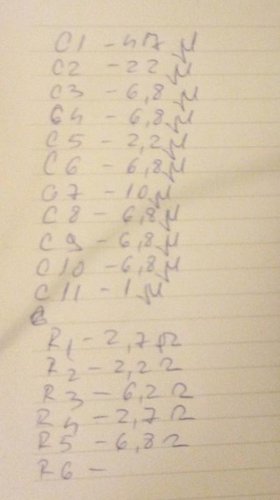 C1 - 47 μ
C2 - 22 μ
C3 - 6,8 μ
C4 - 6,8 μ
C5 - 2,2 μ
C6 - 6,8 μ
C7 - 10 μ
C8 - 6,8 μ
C9 - 6,8 μ
C10 - 6,8 μ
C11 - 1 μ
R1 - 2,7 Ω
R2 - 2,2 Ω
R3 - 6,2 Ω
R4 - 2,7 Ω
R5 - 6,8 Ω
R6 -